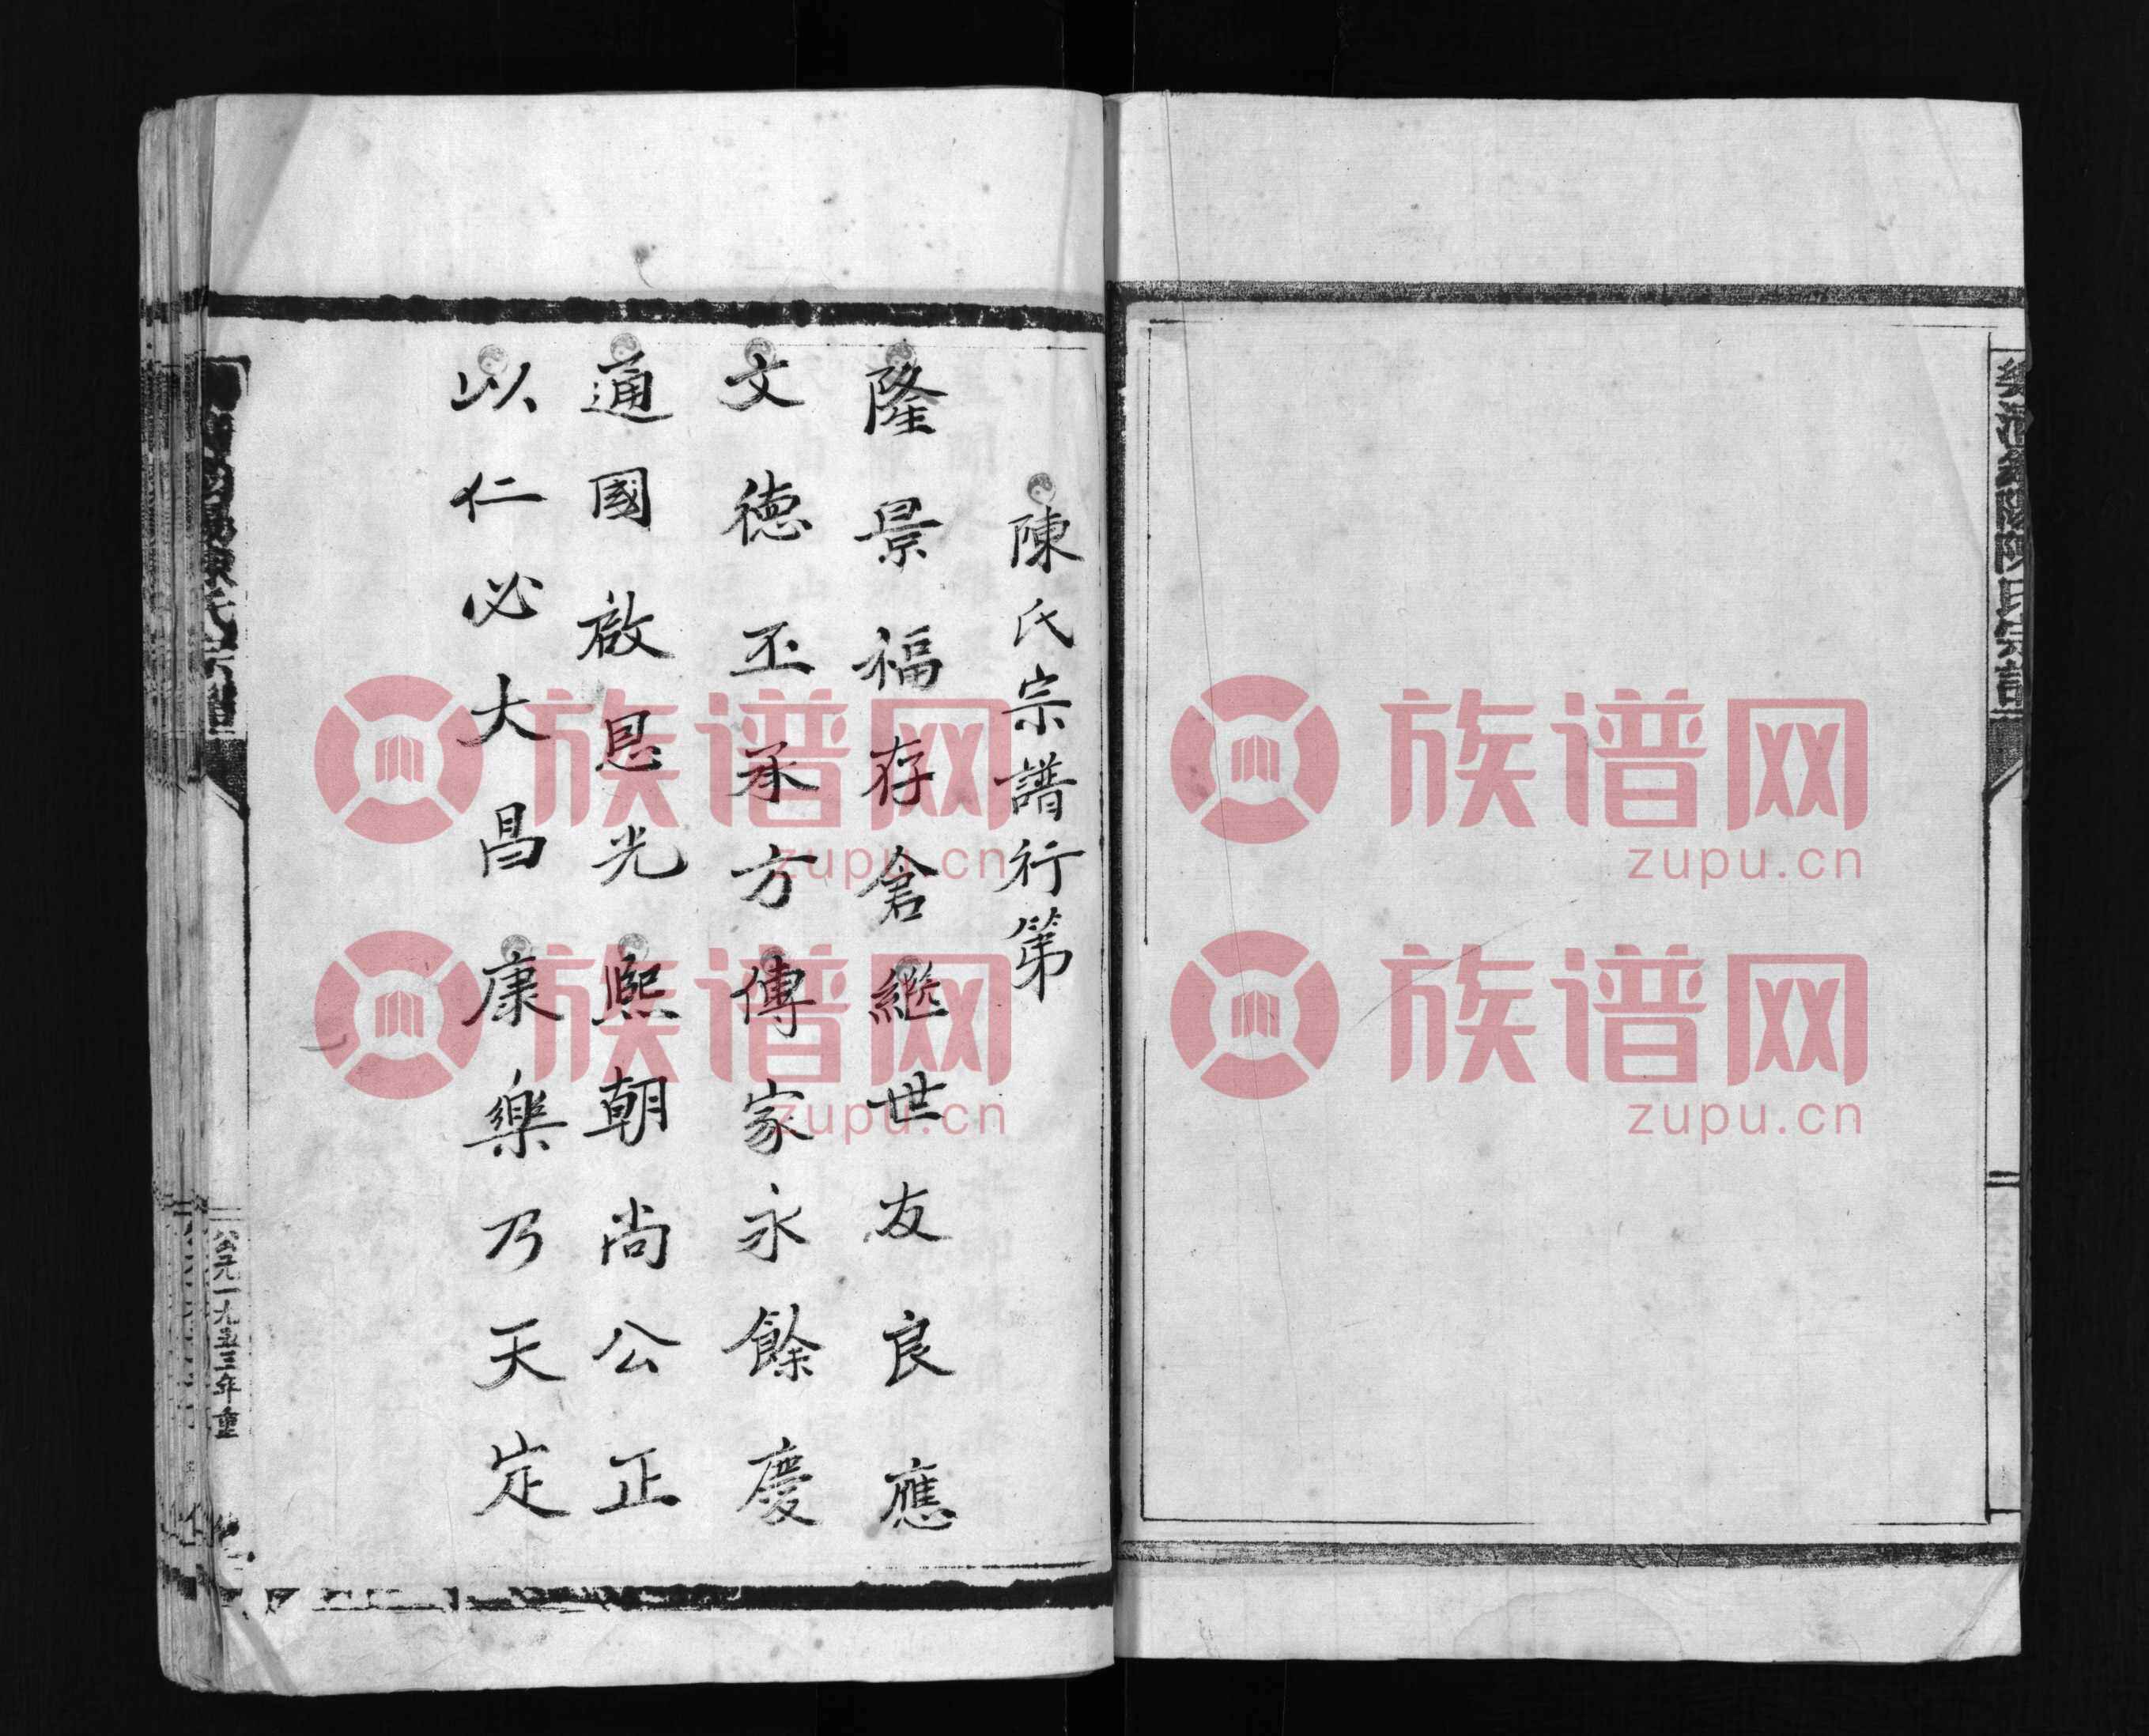 陳氏宗譜行第
隆景福存倉繼世友良應
文徳丕承方傳家永餘慶
通國啟恩光熙朝尚公正
以仁必大昌康樂乃天定
公元一九五三年重
族谱网
zupu.cn
族谱网
zupu.cn
族谱网
zupu.cn
族谱网
zupu.cn